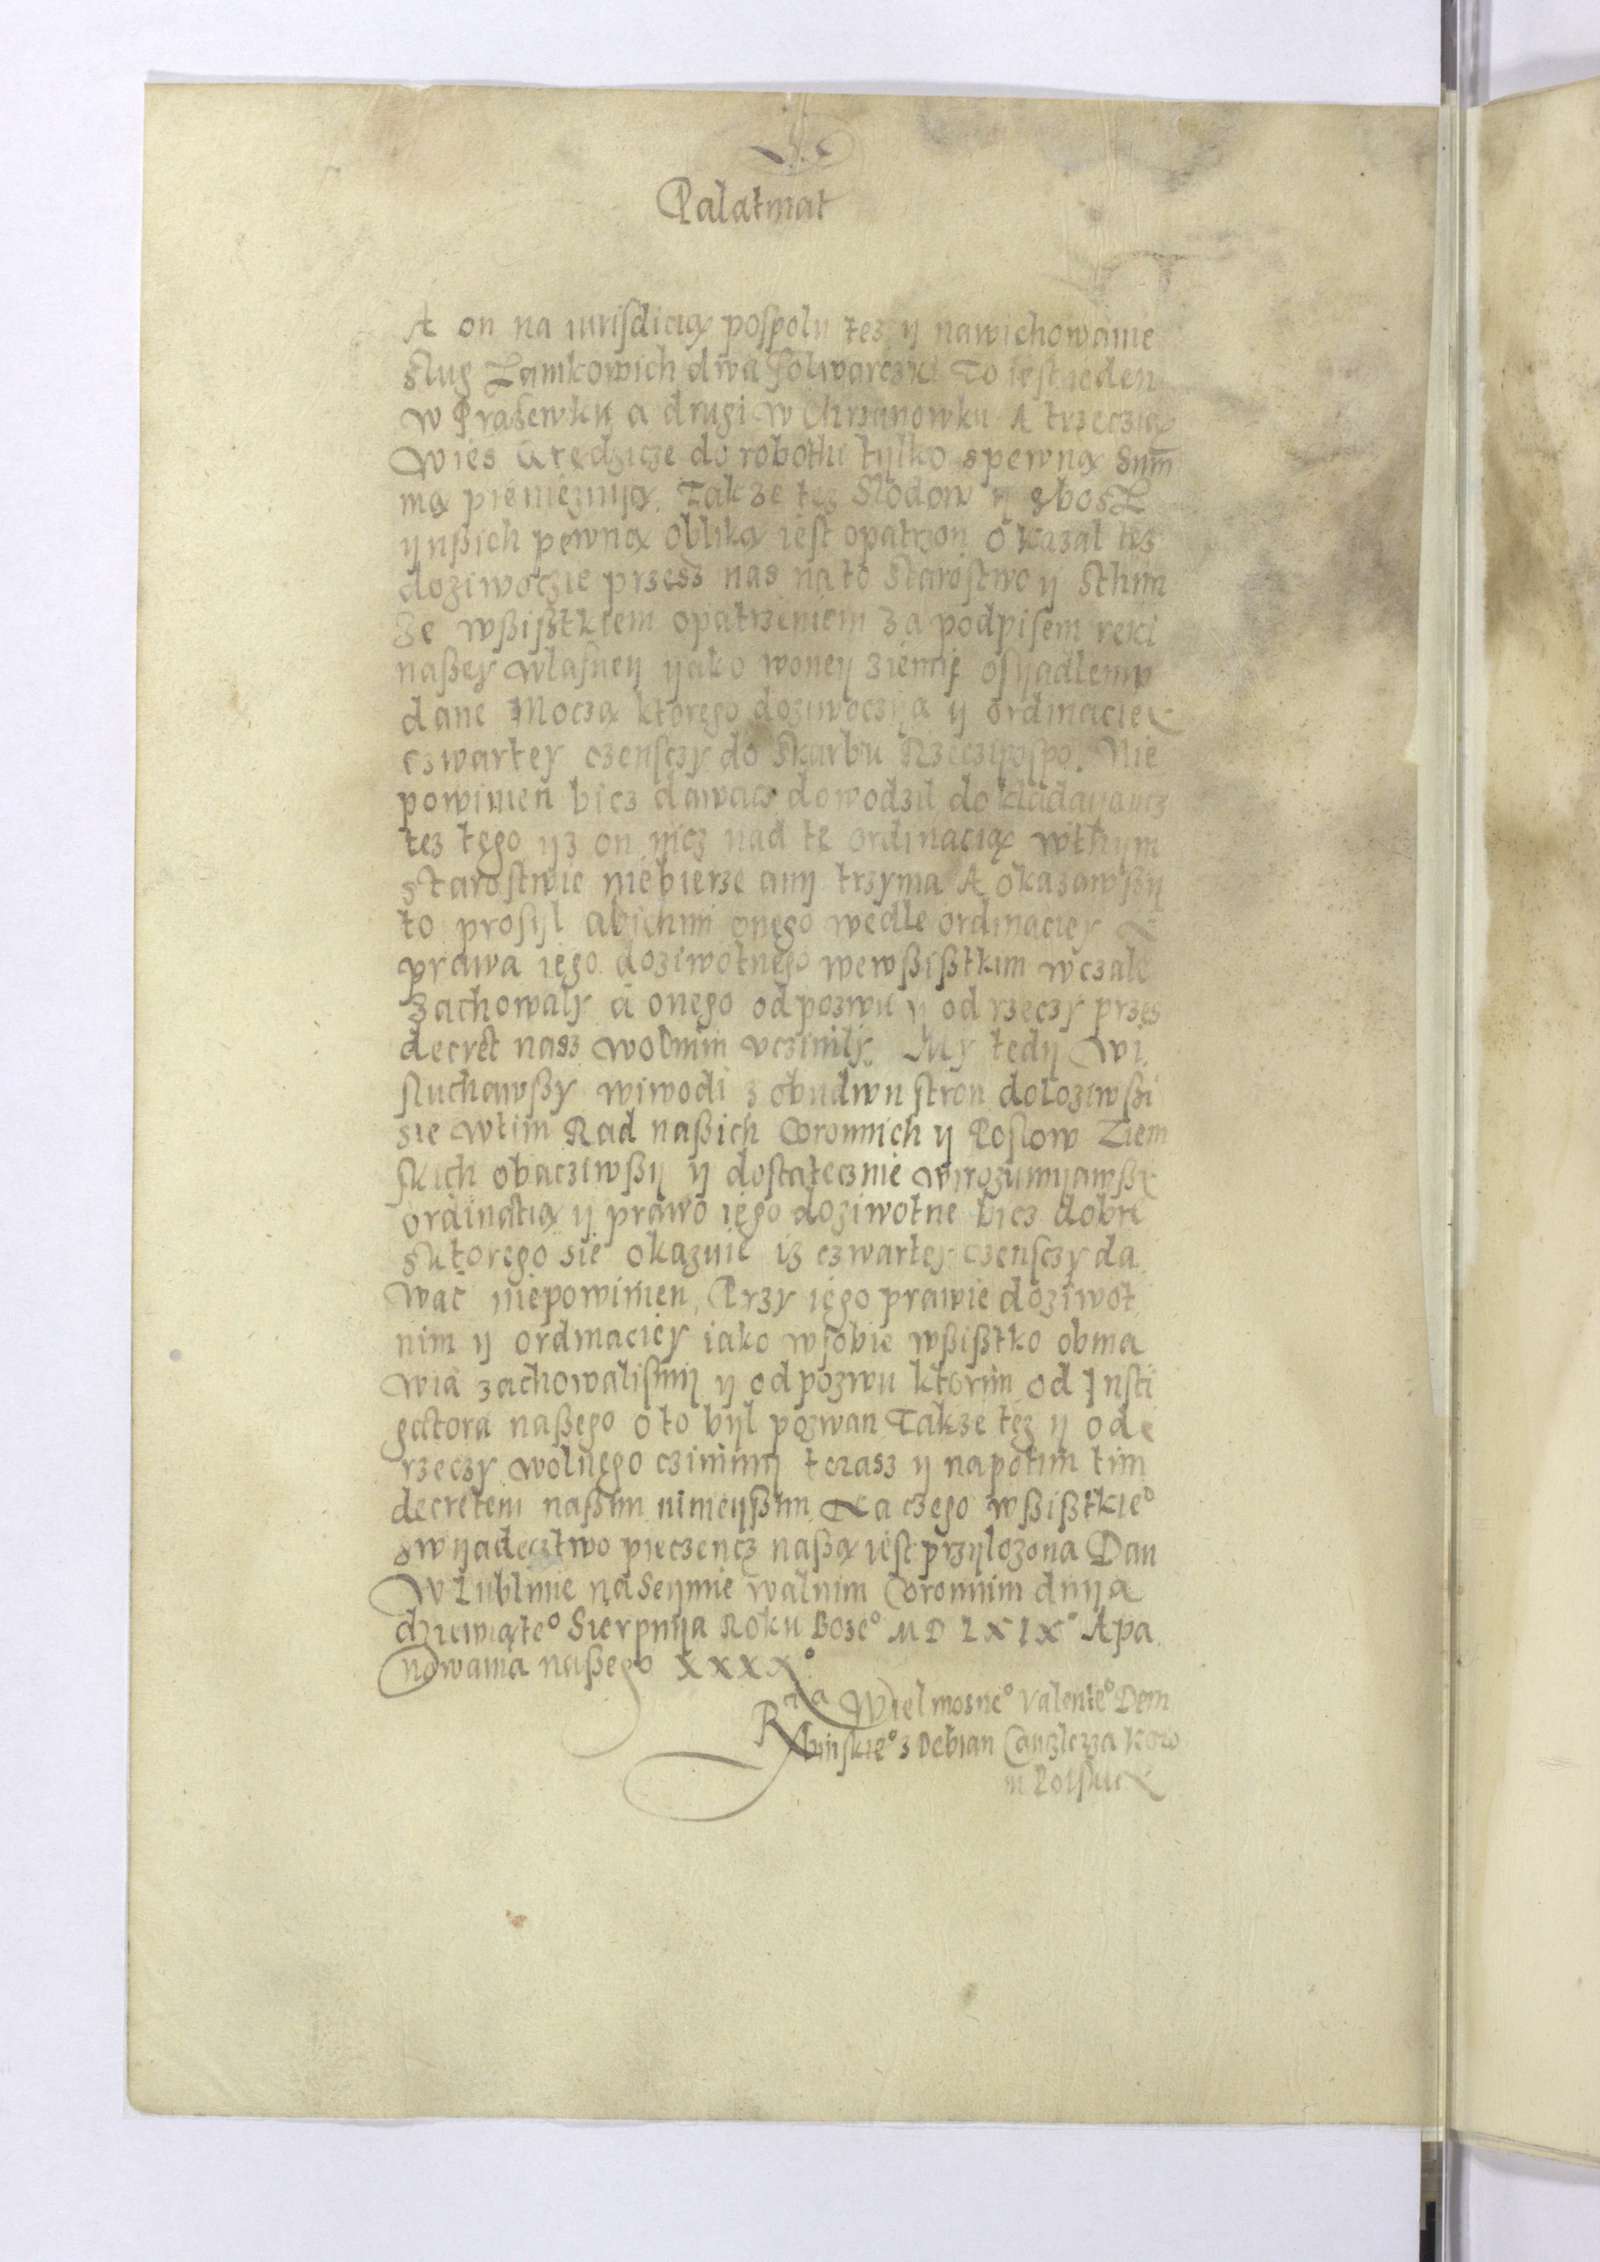 Palatinat
A on na iurisdicią pospolu tez ij nawichowanie
slug Zamkowich dwa Folwarczki To iest ieden
w Praßewku a drugi w Chrzanowku A trzeczią
Wies Arędzicze do robothi tylko spewną Sum̄
mą pieniężniją. Takze tez Slodow ij zbosz
ijnßich pewną obliką iest opatrzon okazal tes
doziwoczie przesz nas na to starostwo ij sthim
Ze wßißtkiem opatrzeniem za podpisem reki
naßey wlasneij ijako woneij ziemię osijadlemu
dane Moczą ktorego doziwoczija ij ordinaciey
czwartey czensczy do Skarbu Rzeczijpospo. Nie
powinien bicz dawacz dowodzil dokladaijancz
tez tego ijz on nicz nad te ordinacią wthijm
starostwie niebierze anij trzyma A okazawßij
to prosijl abichmi onego wedle ordinaciey
prawa iego doziwotnego wewßißtkim wczale
zachowaly a onego od pozwu ij od rzeczy przes
decret nasz wolnim vczinily. My tedij wi
sluchawßy wiwodi z obudwu stron doloziwßi
sie wtim Rad naßich Coronnich ij Poslow Ziem
skich obacziwßij ij dostatecznie wirozumijawßy
ordinatią ij prawo iego doziwotne bicz dobre
sktorego sie okazuie iz czwartey czensczy da
wac niepowinien, Przy iego prawie doziwot
nim ij ordinaciey iako wsobie wßißtko obma
wia zachowalismij ij od pozwu ktorim od Insti
gatora naßego o to bijl pozwan Takze tez ij od
rzeczy wolnego czinimij terasz ij napotim tim
decretem naßim ninieijßim Na czego wßißtkieº
swijadecztwo pieczencz naßą iest przijlozona Dan
W Lublinie na Seijmie walnim Coronnim dnija
dziewiąteº Sierpnija Roku Bozeº MD LXIXº A pa
nowania naßego XXXXº
Rta Wielmosneº Valenteº Dem
binskieº z Debian Canclerza Koro
n Polskiey